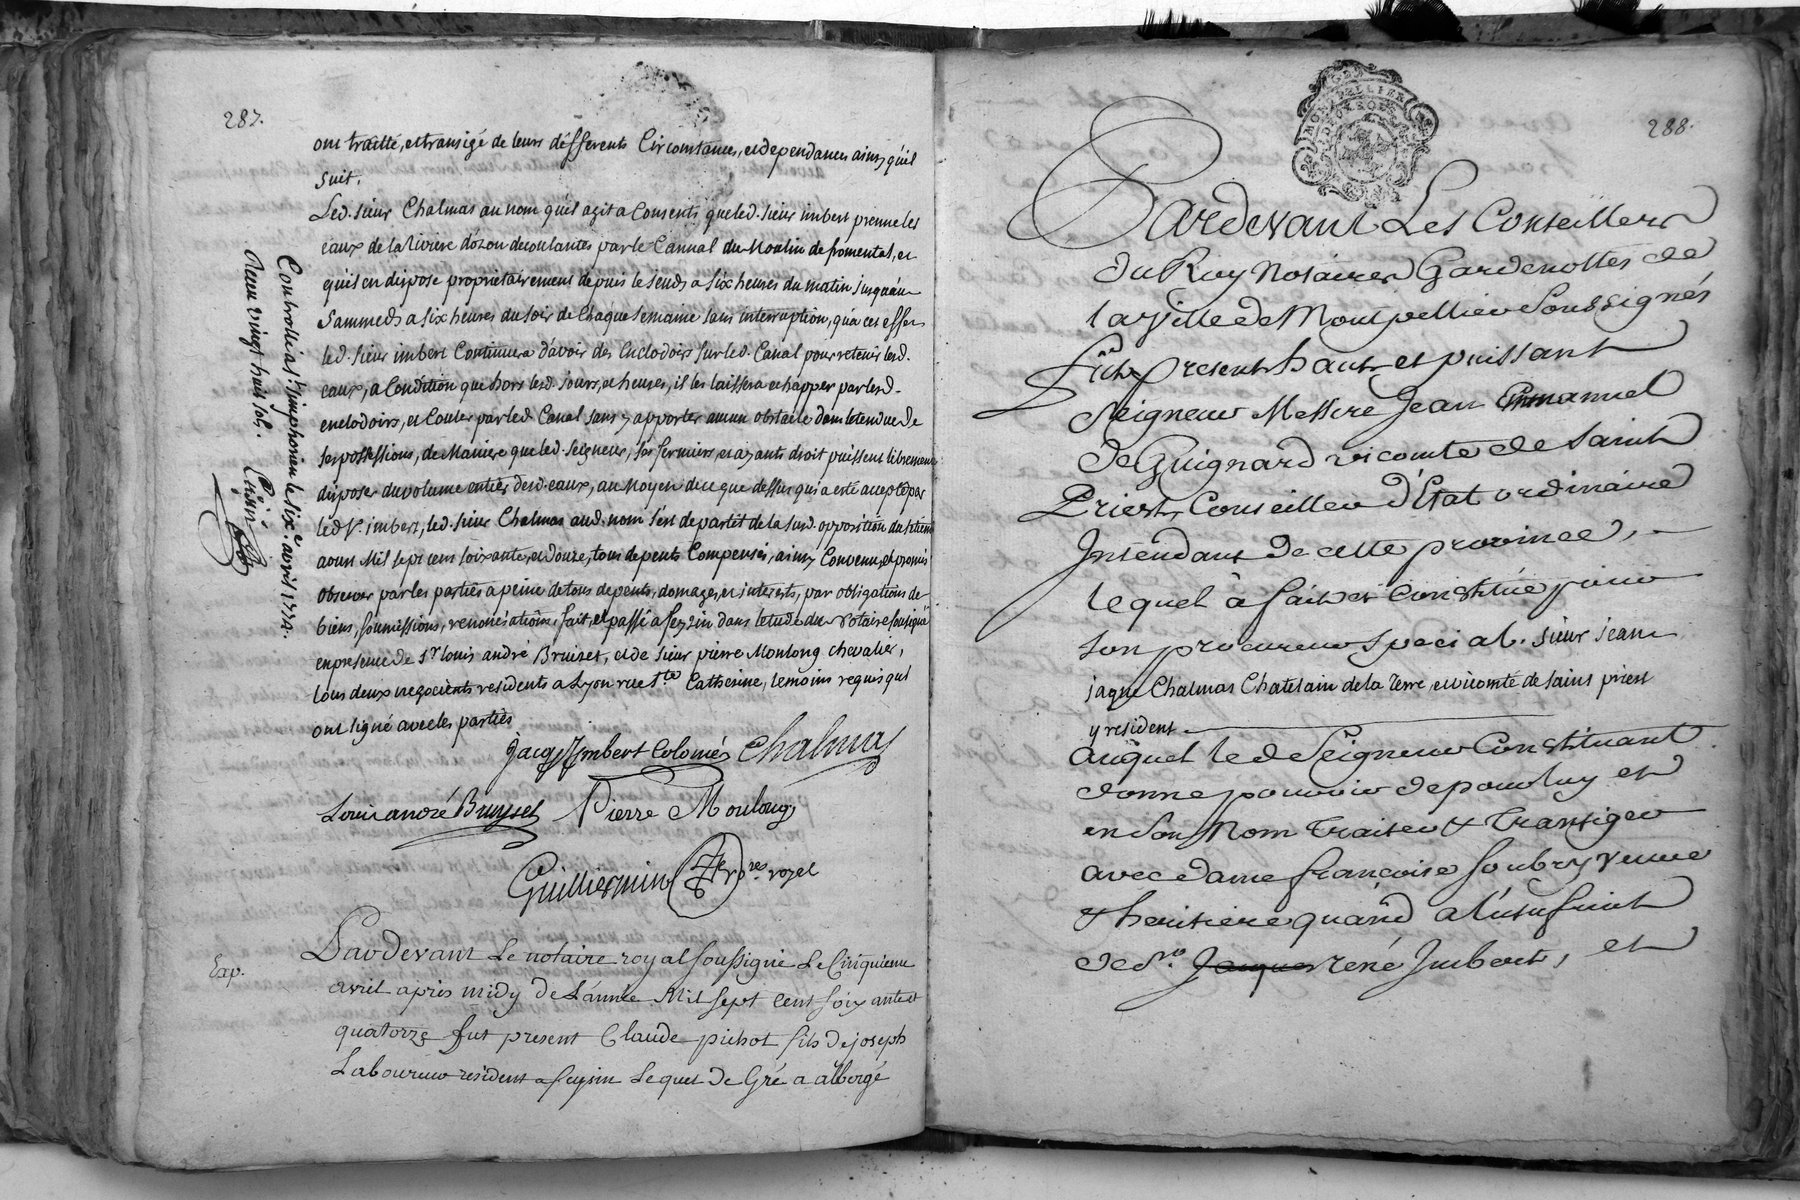 287.
ont traitté, et transigé de leurs différents Circonstances, et dependances ainsy qu'il
suit.
Led. sieur Chalmas au nom qu'il agit a Consenti que led. sieur imbert prenne les
eaux de la riviere d'ozon decoulantes par le Cannal du Moulin de fromental, et
qu'il en dispose proprietairement depuis le lundy a six heures du matin jusqu'au
Sammedy a six heures du soir de Chaque Semaine sans interruption, qu'a cet effet
led. sieur imbert Continuera d'avoir des Enclodoirs sur led. Canal pour retenir lesd.
eaux, a Condition que hors lesd. jours, et heures, il les laissera echapper par lesd.
enclodoirs, et Couler par led Canal sans y apporter aucun obstacle dans letendue de
ses possessions, de Maniere que led. seigneur, ses fermiers, et ayants droit puissent librement
disposer du volume entier desd. eaux, au moyen de ce que dessus qui a esté accepté par
led Sr. imbert, led. sieur Chalmas aud. nom s'est departit de la susd. opposition du
aoust Mil sept cens soixante, et douze, tous depents Compensés, ainsy Convenu, et promis
observer par les parties a peine de tous depents, domages, et interests, par obligations de
biens, soumissions, renonciations, fait, et passé a feyzin dans letude du Notaire soussigné
en presence de sr louis andré Bruiset, et de sieur pierre Monlong chevalier,
tous deux negocients residents a Lyon rue Ste Catherine, temoins requis qui
ont signé avec les parties
Jacq Imbert Colomés Chalmas
Louis andré Bruyset Pierre Monlong
Guilliermin nore royal
Controllé a St. simphorien le six. avril 1774.
Reçu vingt huit sols.
Exp.
Pardevant Le notaire royal soussigné Le Cinquieme
avril après midy De L'année Mil sept cent soixante et
quatorze fut present Claude pichot fils de joseph
Laboureur resident a feyzin Lequel De Gré a albergé
288.
MONTPELLIER
Pardevant Les Conseillers
du Roy Notaires Gardenottes de
la Ville de Montpellier Soussignés
Fut Present haut et puissant
Seigneur Messire Jean Emmanuel
de Guignard vicomte de Saint
Priest, Conseiller d'Etat ordinaire
Intendant de cette province,
lequel à fait et Constitué pour
son procureur special. sieur jean
jaque Chalmas Chatelain de la Terre, et vicomté de saint priest
y resident
auquel led Seigneur Constituant
donne pouvoir de pour luy et
en Son Nom Traiter & Transiger
avec dame françoise Soubry veuve
& heritiere quand a l'usufruit
de Sr. Jacques rené Imbert, et